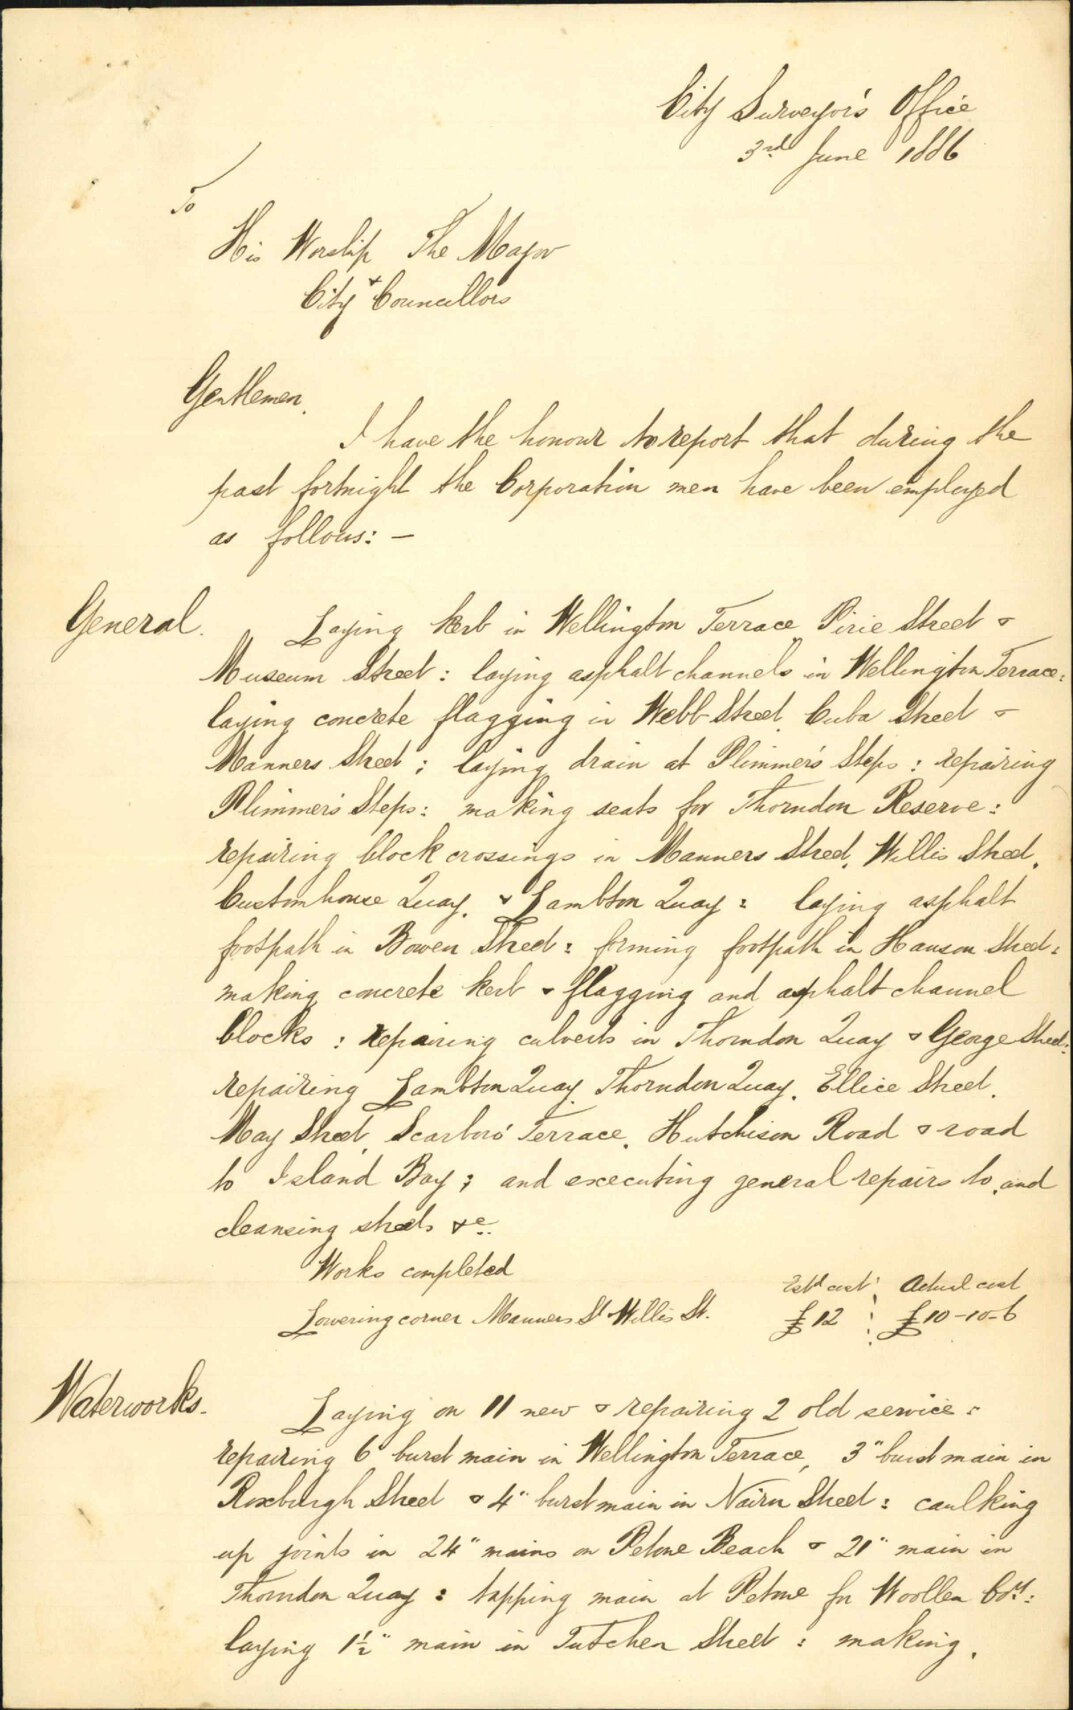 City Surveyor's Office
3rd June 1886
To
His Worship The Mayor
& City Councillors
Gentlemen,
I have the honour to report that during the
past fortnight the Corporation men have been employed
as follows: —
General. Laying kerb in Wellington Terrace, Pirie Street &
Museum Street: laying asphalt channels in Wellington Terrace:
laying concrete flagging in Webb Street, Cuba Street &
Manners Street; laying drain at Plimmer's Steps: repairing
Plimmer's Steps: making seats for Thorndon Reserve:
repairing block crossings in Manners Street, Willis Street,
Customhouse Quay, & Lambton Quay: laying asphalt
footpath in Bowen Street: forming footpath in Hanson Street:
making concrete kerb & flagging and asphalt channel
blocks: repairing culverts in Thorndon Quay & George Street:
repairing Lambton Quay, Thorndon Quay, Ellice Street,
May Street, Scarboro' Terrace, Hutchison Road & road
to Island Bay; and executing general repairs to, and
cleansing streets &c.
Works completed
Estd cost Actual cost
Lowering corner Manners St Willis St. £12 £10-10-6
Waterworks. Laying on 11 new & repairing 2 old service:
repairing 6" burst main in Wellington Terrace, 3" burst main in
Roxburgh Street & 4" burst main in Nairn Street: caulking
up joints in 24" mains on Petone Beach & 21" main in
Thorndon Quay: tapping main at Petone for Woollen Coy:
laying 1½" main in Tutchen Street: making